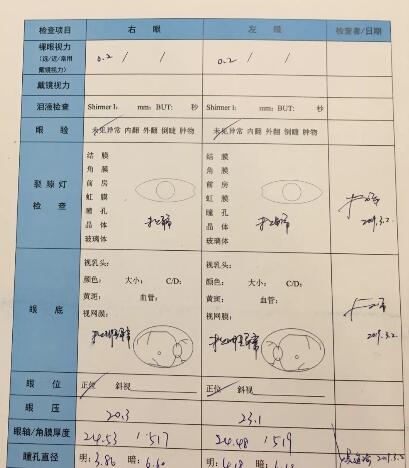 检查项目 右 眼 左 眼 检查者/日期
裸眼视力 0.2 / / 0.2 / /
(远/近/常用
戴镜视力)
戴镜视力
泪液检查 Shirmer I: mm: BUT: 秒 Shirmer I: mm: BUT: 秒
眼 睑 未见异常 内翻 外翻 倒睫 肿物 未见异常 内翻 外翻 倒睫 肿物
裂隙灯
检 查
结 膜 结 膜
角 膜 角 膜
前 房 前 房
虹 膜 虹 膜
瞳 孔 瞳 孔
晶 体 晶 体
玻璃体 玻璃体
2019.3.2
眼 底
视乳头: 视乳头:
颜色: 大小: C/D: 颜色: 大小: C/D:
黄斑: 血管: 黄斑: 血管:
视网膜: 视网膜:
2019.3.2
眼 位 正位 斜视 正位 斜视
眼 压 20.3 23.1
眼轴/角膜厚度 24.53 / 517 24.48 / 519
瞳孔直径 明: 3.86 暗: 明: 4.18 暗: 2019.3.2